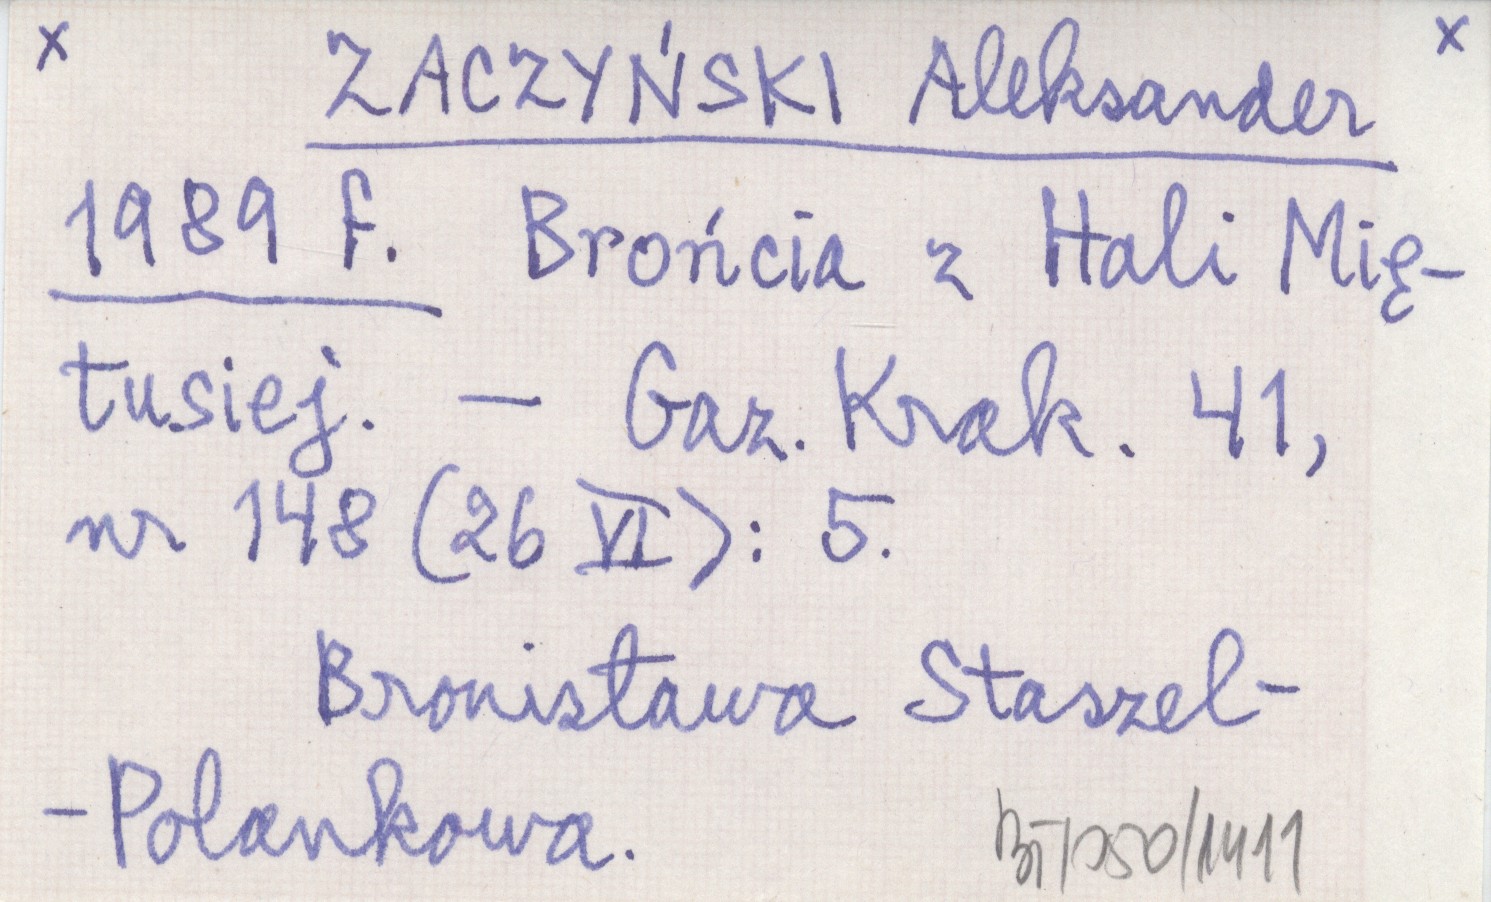 x ZACZYŃSKI Aleksander x
1989 f. Brońcia z Hali Mię-
tusiej. — Gaz. Krak. 41,
nr 148 (26 VI): 5.
Bronisława Staszel-
-Polankowa.